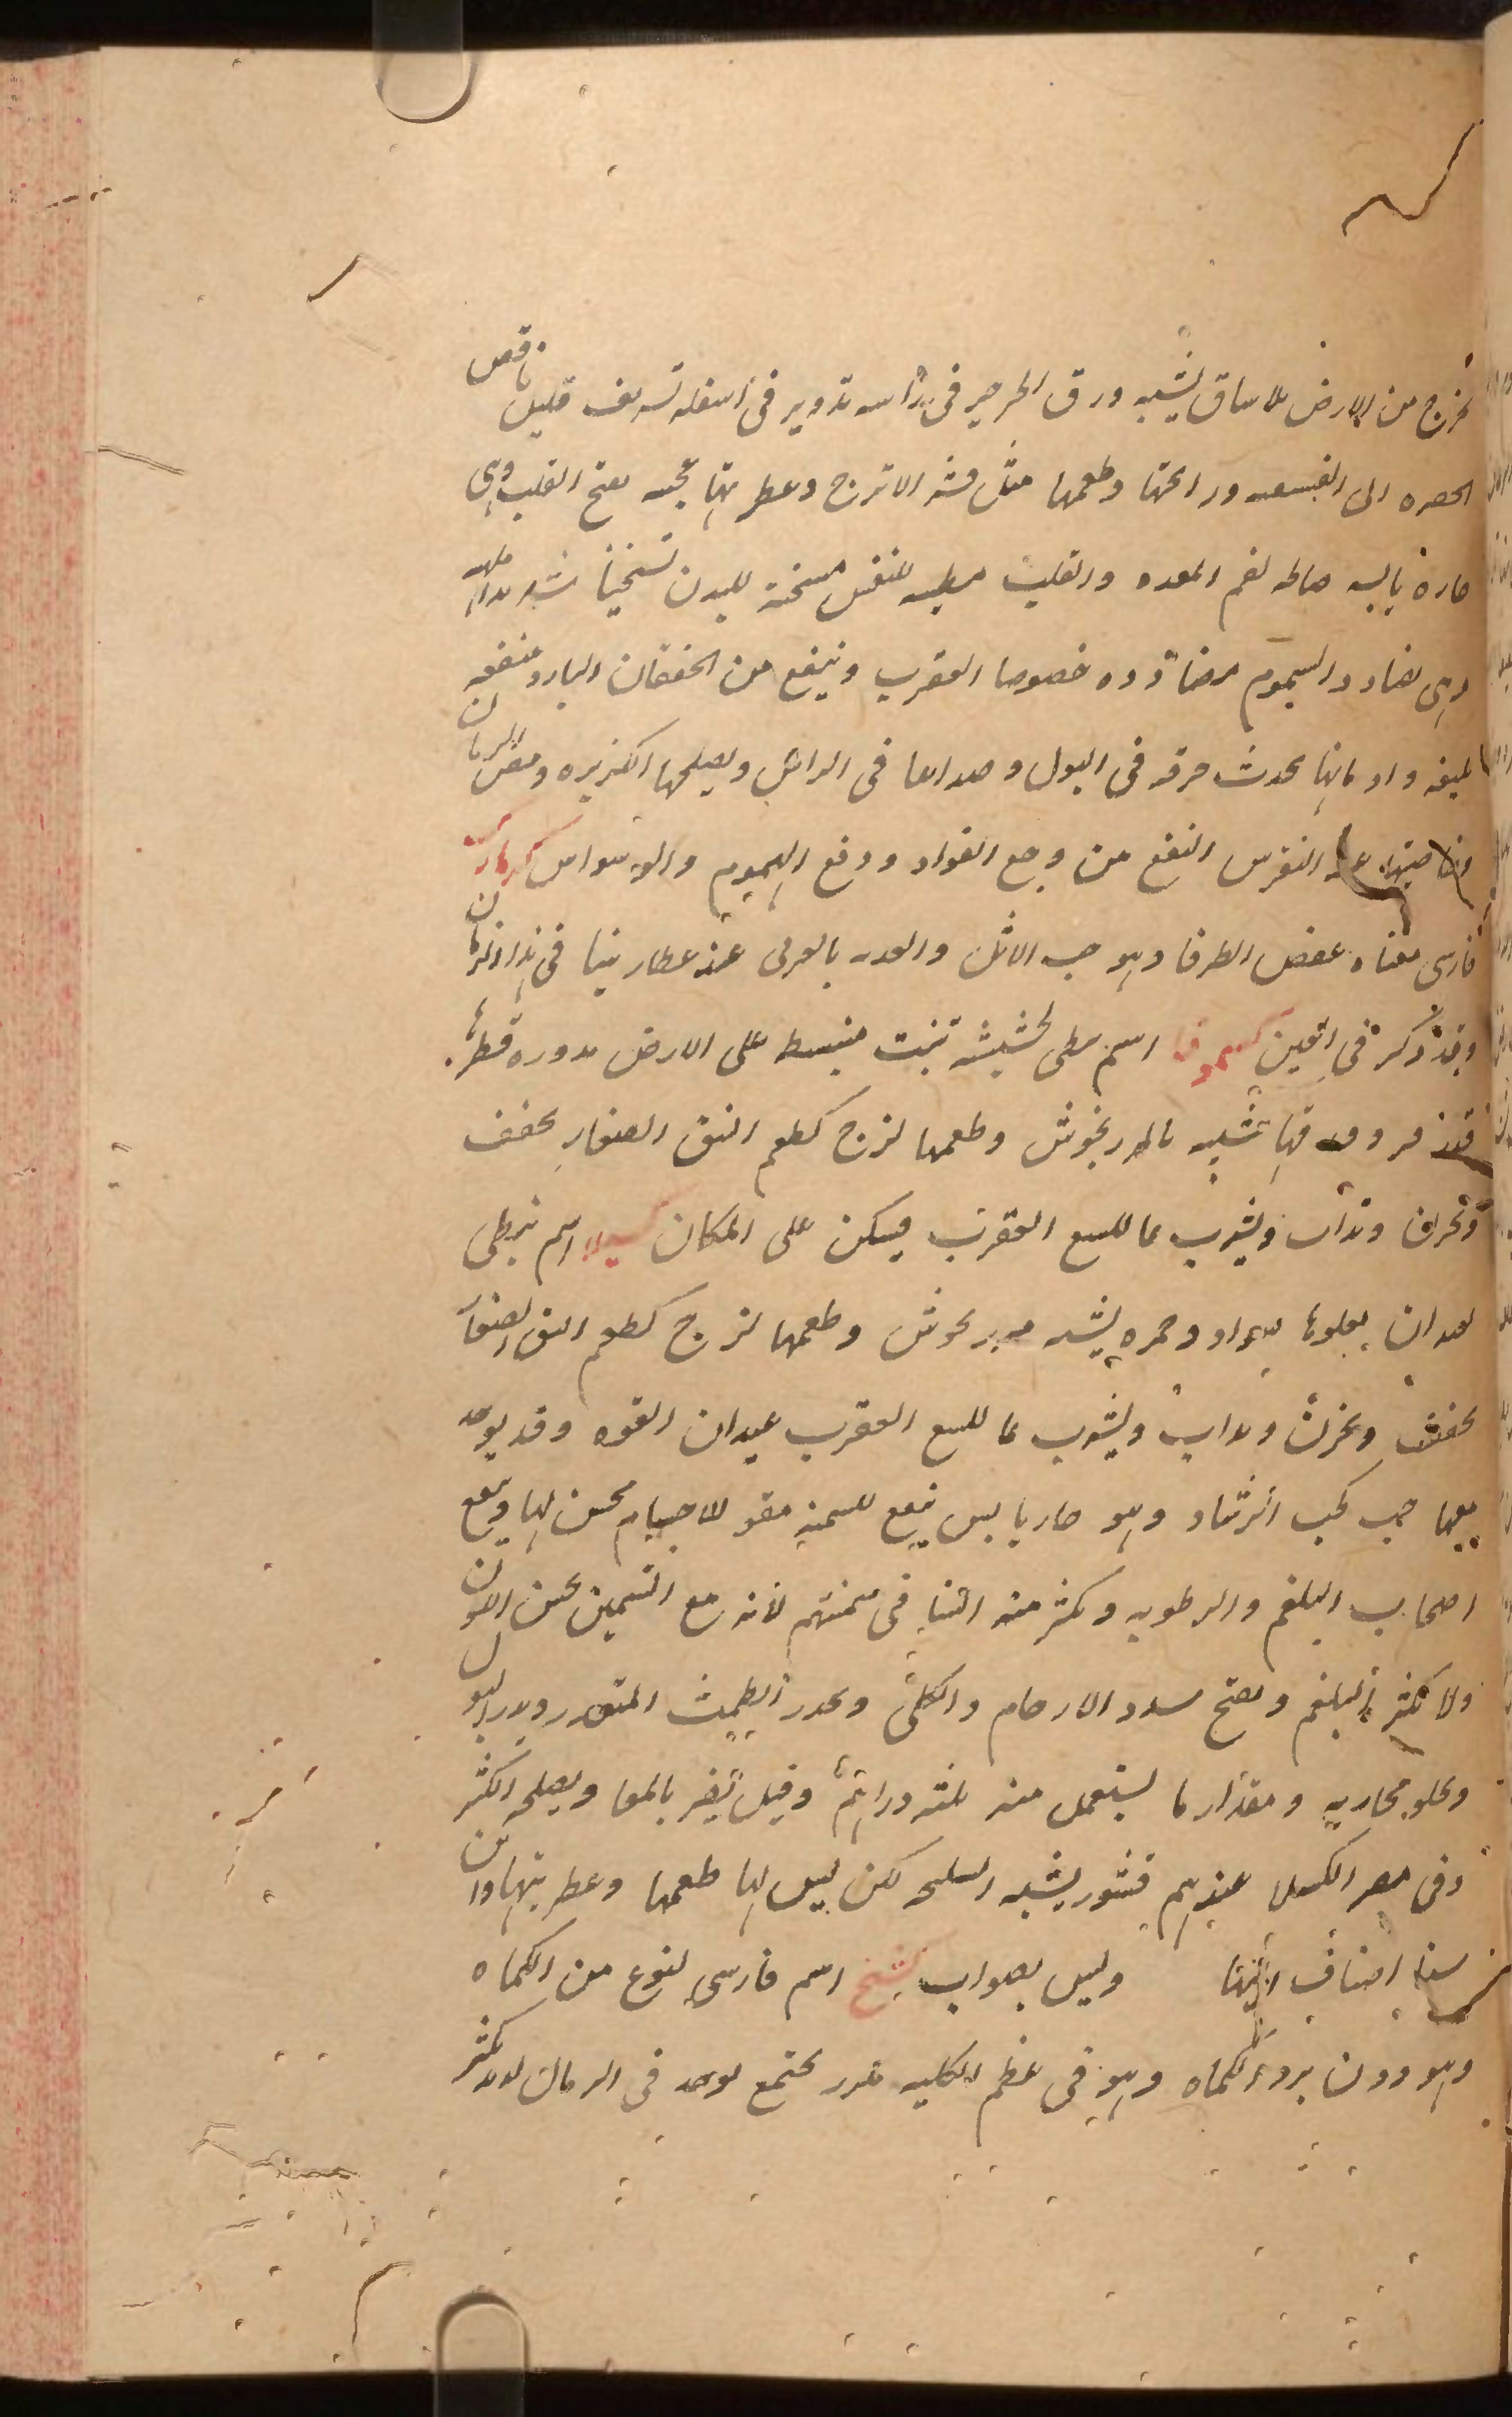 تخرج من الارض بلا ساق يشبه ورق الجرجير في رأسه تدوير في اسفله تشريف قليل ناقص
الخضره الى الفستقيه ورائحتها وطعمها مثل قشر الاترج وعطريتها عجيبه تفتح القلب وهي
حاره يابسه صالحه لفم المعده والقلب مطيبه للنفس مسخنة للبدن تسخيناً شديداً
وهي تضادد السموم مضاددة خصوصا العقرب وينفع من الخفقان البارد منفعه
بليغه وادمانها يحدث حرقه في البول وصداعا في الراس ويصلحها الكزبره ومص الرمان
وخاصيتها النفع من وجع الفواد ودفع الهموم والوسواس كزمازك
فارسي معناه عفص الطرفا وهو حب الاثل والعذبه بالعربى عند عطارينا في هذا الزمان
وقد ذكر في العين اسم نبطي لحشيشة تنبت منبسطه على الارض مدوره قطرها
فتر وورقها شبيه بالمرزنجوش وطعمها لزج كطعم النبق الصغار تجفف
وتخزن وتداف ويشرب بما للسع العقرب فيسكن على المكان كسيلا اسم نبطي
لعيدان يعلوها سواد وحمره يشبه مرزنجوش وطعمها لزج كطعم النبق الصغار
تجفف وتخزن وتداف ويشرب بما للسع العقرب عيدان الفوه وقد يوجد
معها حب كحب الرشاد وهو حار يابس ينفع للسمنه مقو للاجسام محسن لها وينفع
اصحاب البلغم والرطوبه ويكثر منه النسا في سمنتهم لأنه مع التسمين يحسن اللون
ولا يكثر البلغم ويفتح سدد الارحام والكلى ويحدر الطمث المتعذر ويدر البول
ويجلو مجاريه ومقدار ما يستعمل منه ثلثه دراهم وقيل يضر بالمعا ويصلحه الكثيرا
وفي مصر الكسيلا عندهم قشور يشبه السليخه لكن ليس لها طعمها وعطريتها وان
سنا اصناف وليس بصواب كشنج اسم فارسي لنوع من الكماه
وهو دون برد الكماه وهو في عظم الكليه مدور مجتمع يوجد في الرمال